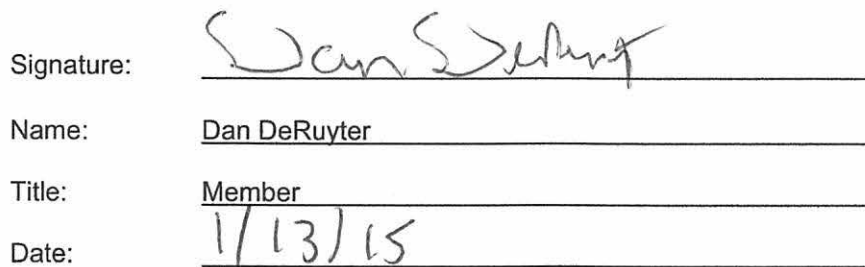 Signature: Dan DeRuyter
Name: Dan DeRuyter
Title: Member
Date: 1/13/15